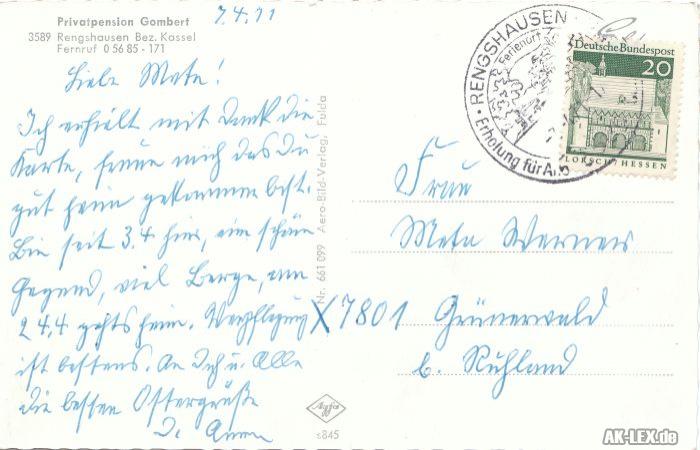 Privatpension Gombert
3589 Rengshausen Bez. Kassel
Fernruf 0 56 85 - 171
7.4.71
Liebe Meta!
Ich erhielt mit Dank die
Karte, freue mich das du
gut heim gekommen bist.
Bin seit 3.4 hier, eine schöne
Gegend, viel Berge, am
24.4 gehts heim. Verpflegung
ist bestens. An Dich u. Alle
die besten Ostergrüße
D. Anna
Nr. 661 099 Aero-Bild-Verlag, Fulda
Agfa
s845
RENGSHAUSEN
Ferienort
Erholung für
Deutsche Bundespost
20
LORSCH/HESSEN
Frau
Meta Werner
X7801 Grünerwald
b. Ruhland
AK-LEX.de